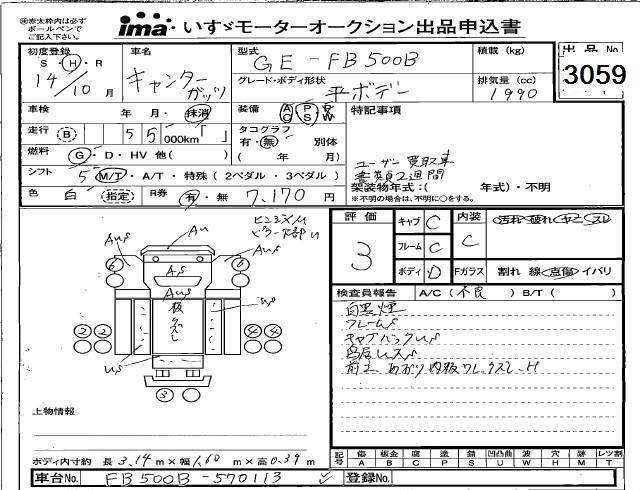 ※赤太枠内は必ず
ボールペンで
ご記入下さい。
ima いすゞモーターオークション出品申込書
出品No
3059
初度登録
S・H・R
14/10月
車名
キャンター
ガッツ
型式
GE-FB500B
グレード・ボディ形状
平ボデー
積載(kg)
排気量(cc)
1990
車検 年 月・抹消
走行 B 55 000km「 」
燃料 G・D・HV 他( )
装備 AC PS PW
タコグラフ
有・無 別体
( 年 月)
特記事項
ユーザー買取車
書類2週間
架装物年式:( 年式)・不明
※不明の場合は、不明に○をする。
シフト 5 M/T・A/T・特殊(2ペダル・3ペダル)
色 白 指定 R券 有・無 7,170円
評価
3
キャブ C
フレーム C
ボディ D
内装 C
汚れ・破れ・ヤニ・スレ
Fガラス 割れ 線 点傷 イバリ
検査員報告 A/C(不良) B/T( )
白黒煙
フレームS
上物情報
ボディ内寸約 長3.14m×幅1.60m×高0.39m
記号 傷A 板金B 腐C 塗P 錆S 凹凸曲U 波W 穴H 跡M レツ割T
車台No. FB500B-570113
登録No.